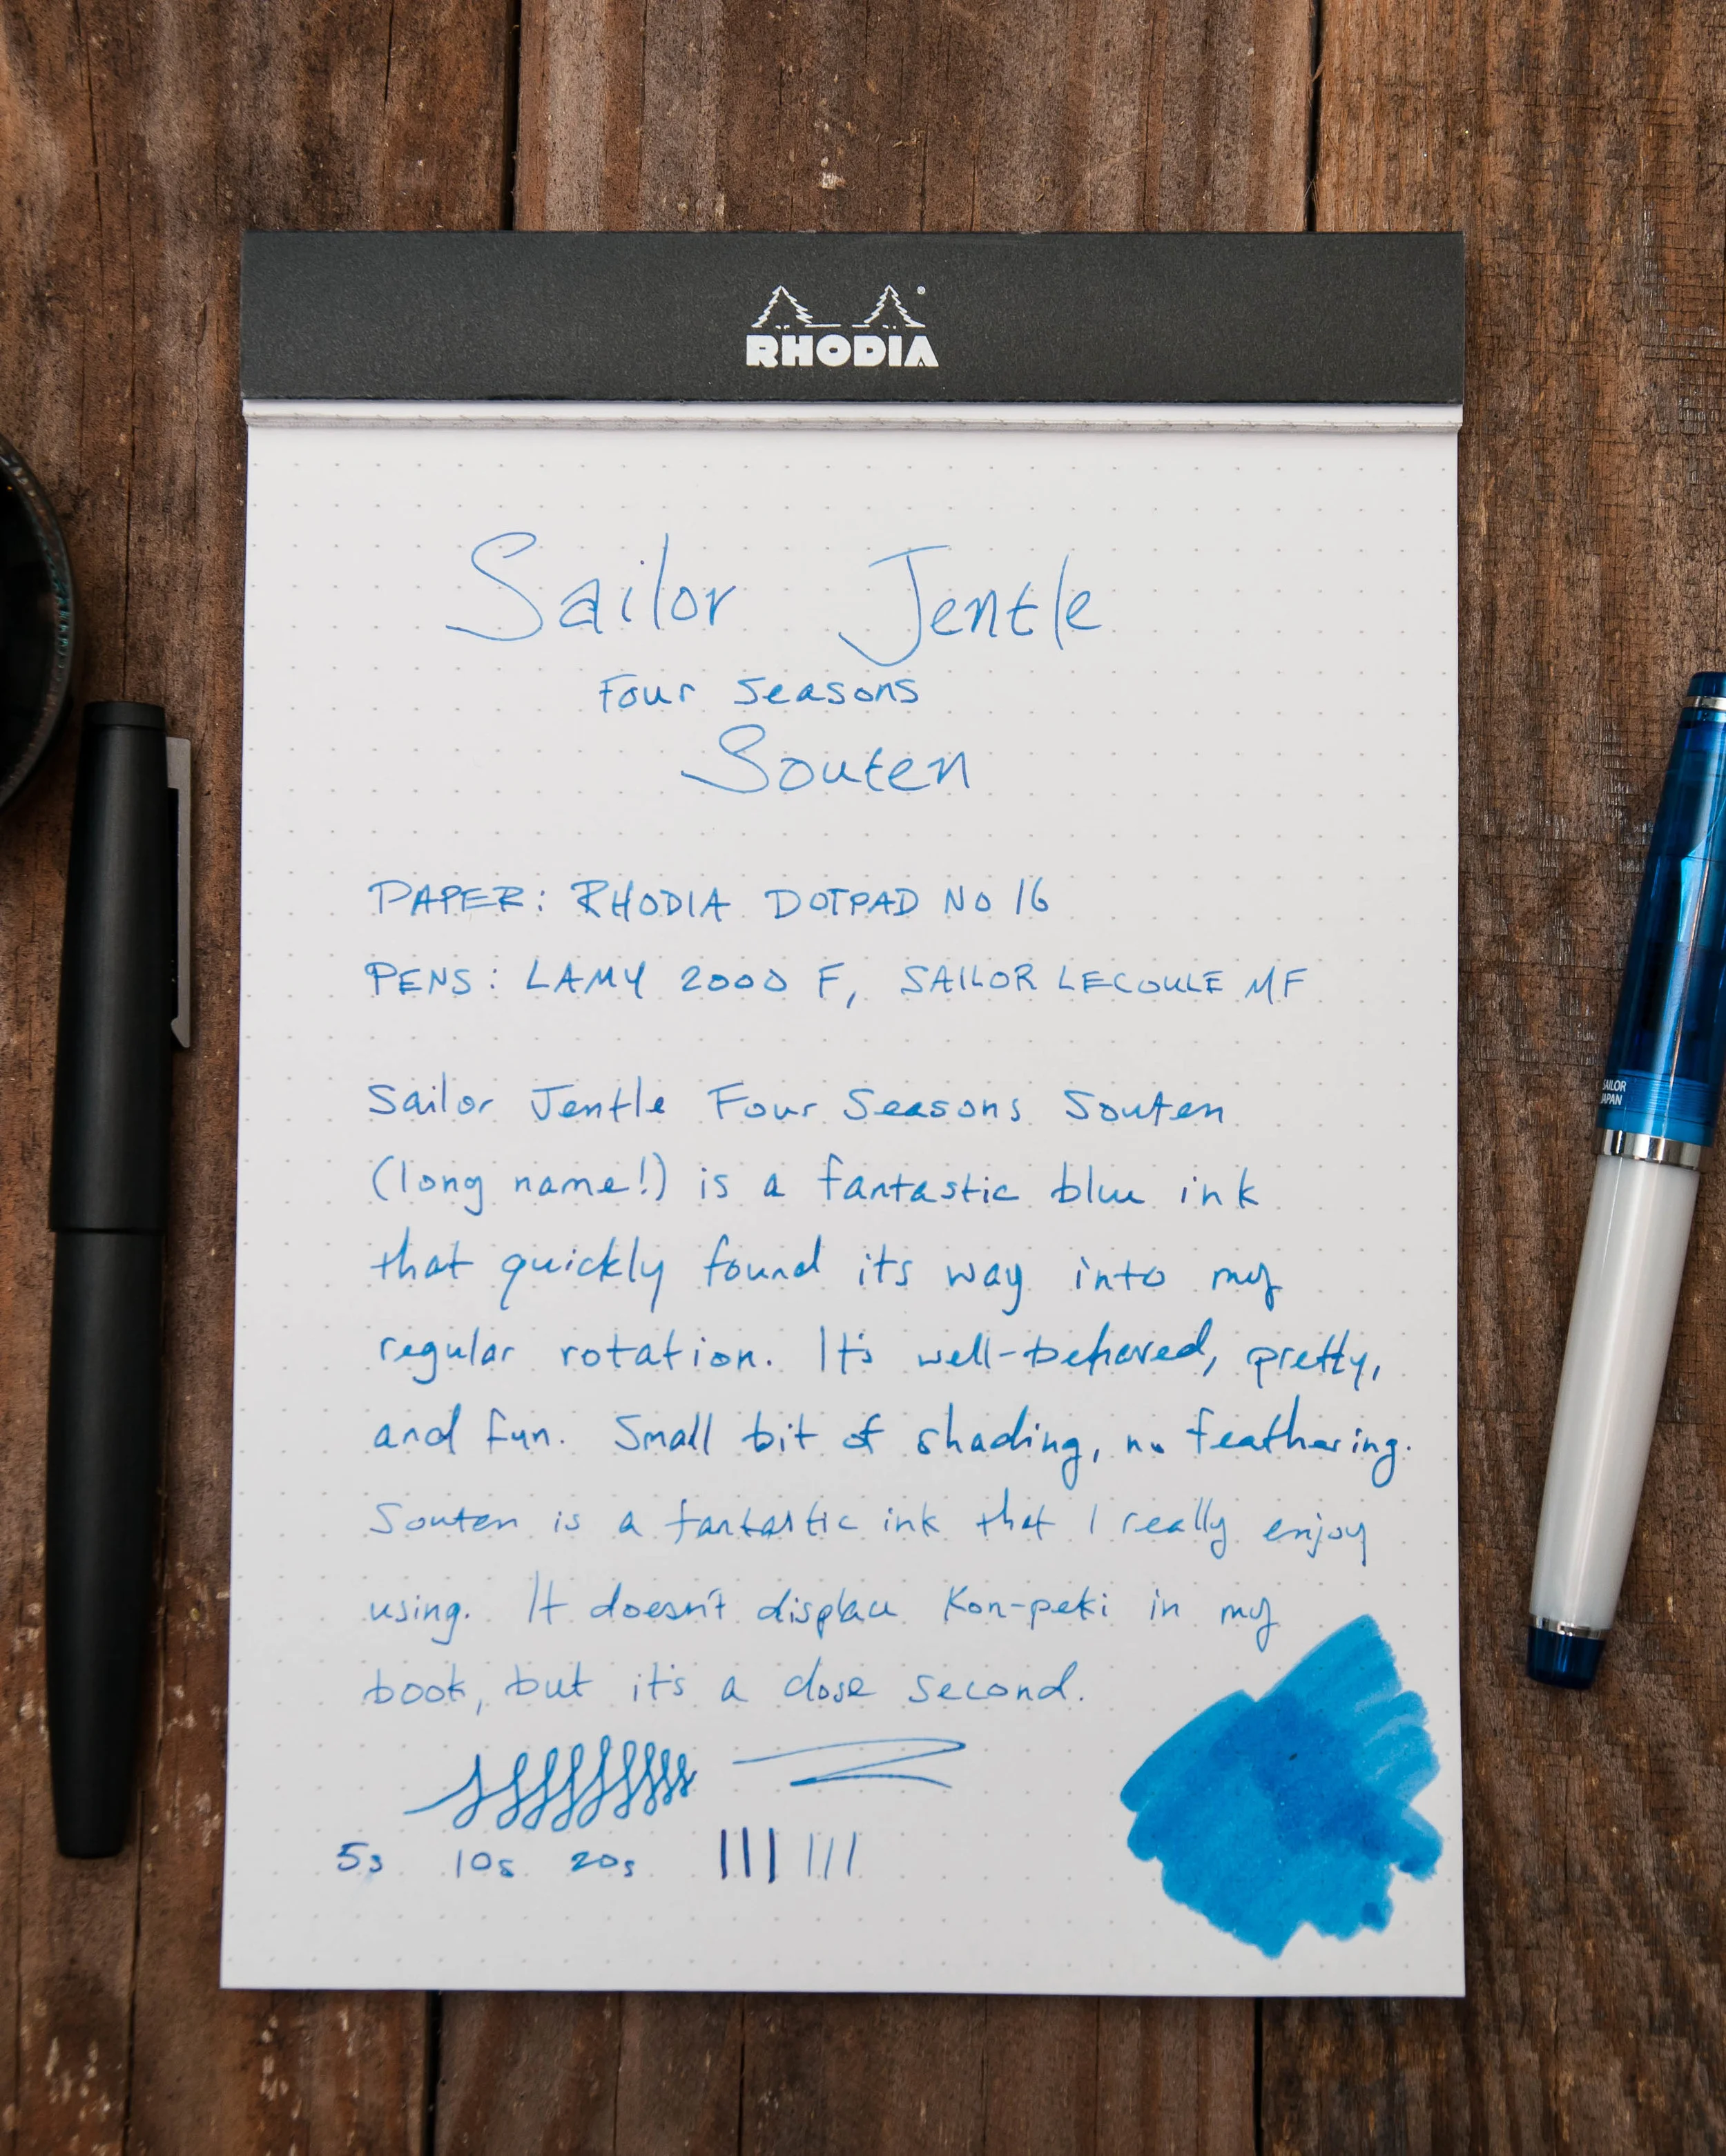 RHODIA
Sailor Jentle
Four Seasons
Souten
PAPER: RHODIA DOTPAD NO 16
PENS: LAMY 2000 F, SAILOR LECOULE MF
Sailor Jentle Four Seasons Souten
(long name!) is a fantastic blue ink
that quickly found its way into my
regular rotation. It's well-behaved, pretty,
and fun. Small bit of shading, no feathering.
Souten is a fantastic ink that I really enjoy
using. It doesn't displace Kon-peki in my
book, but it's a close second.
5s 10s 20s
SAILOR
JAPAN